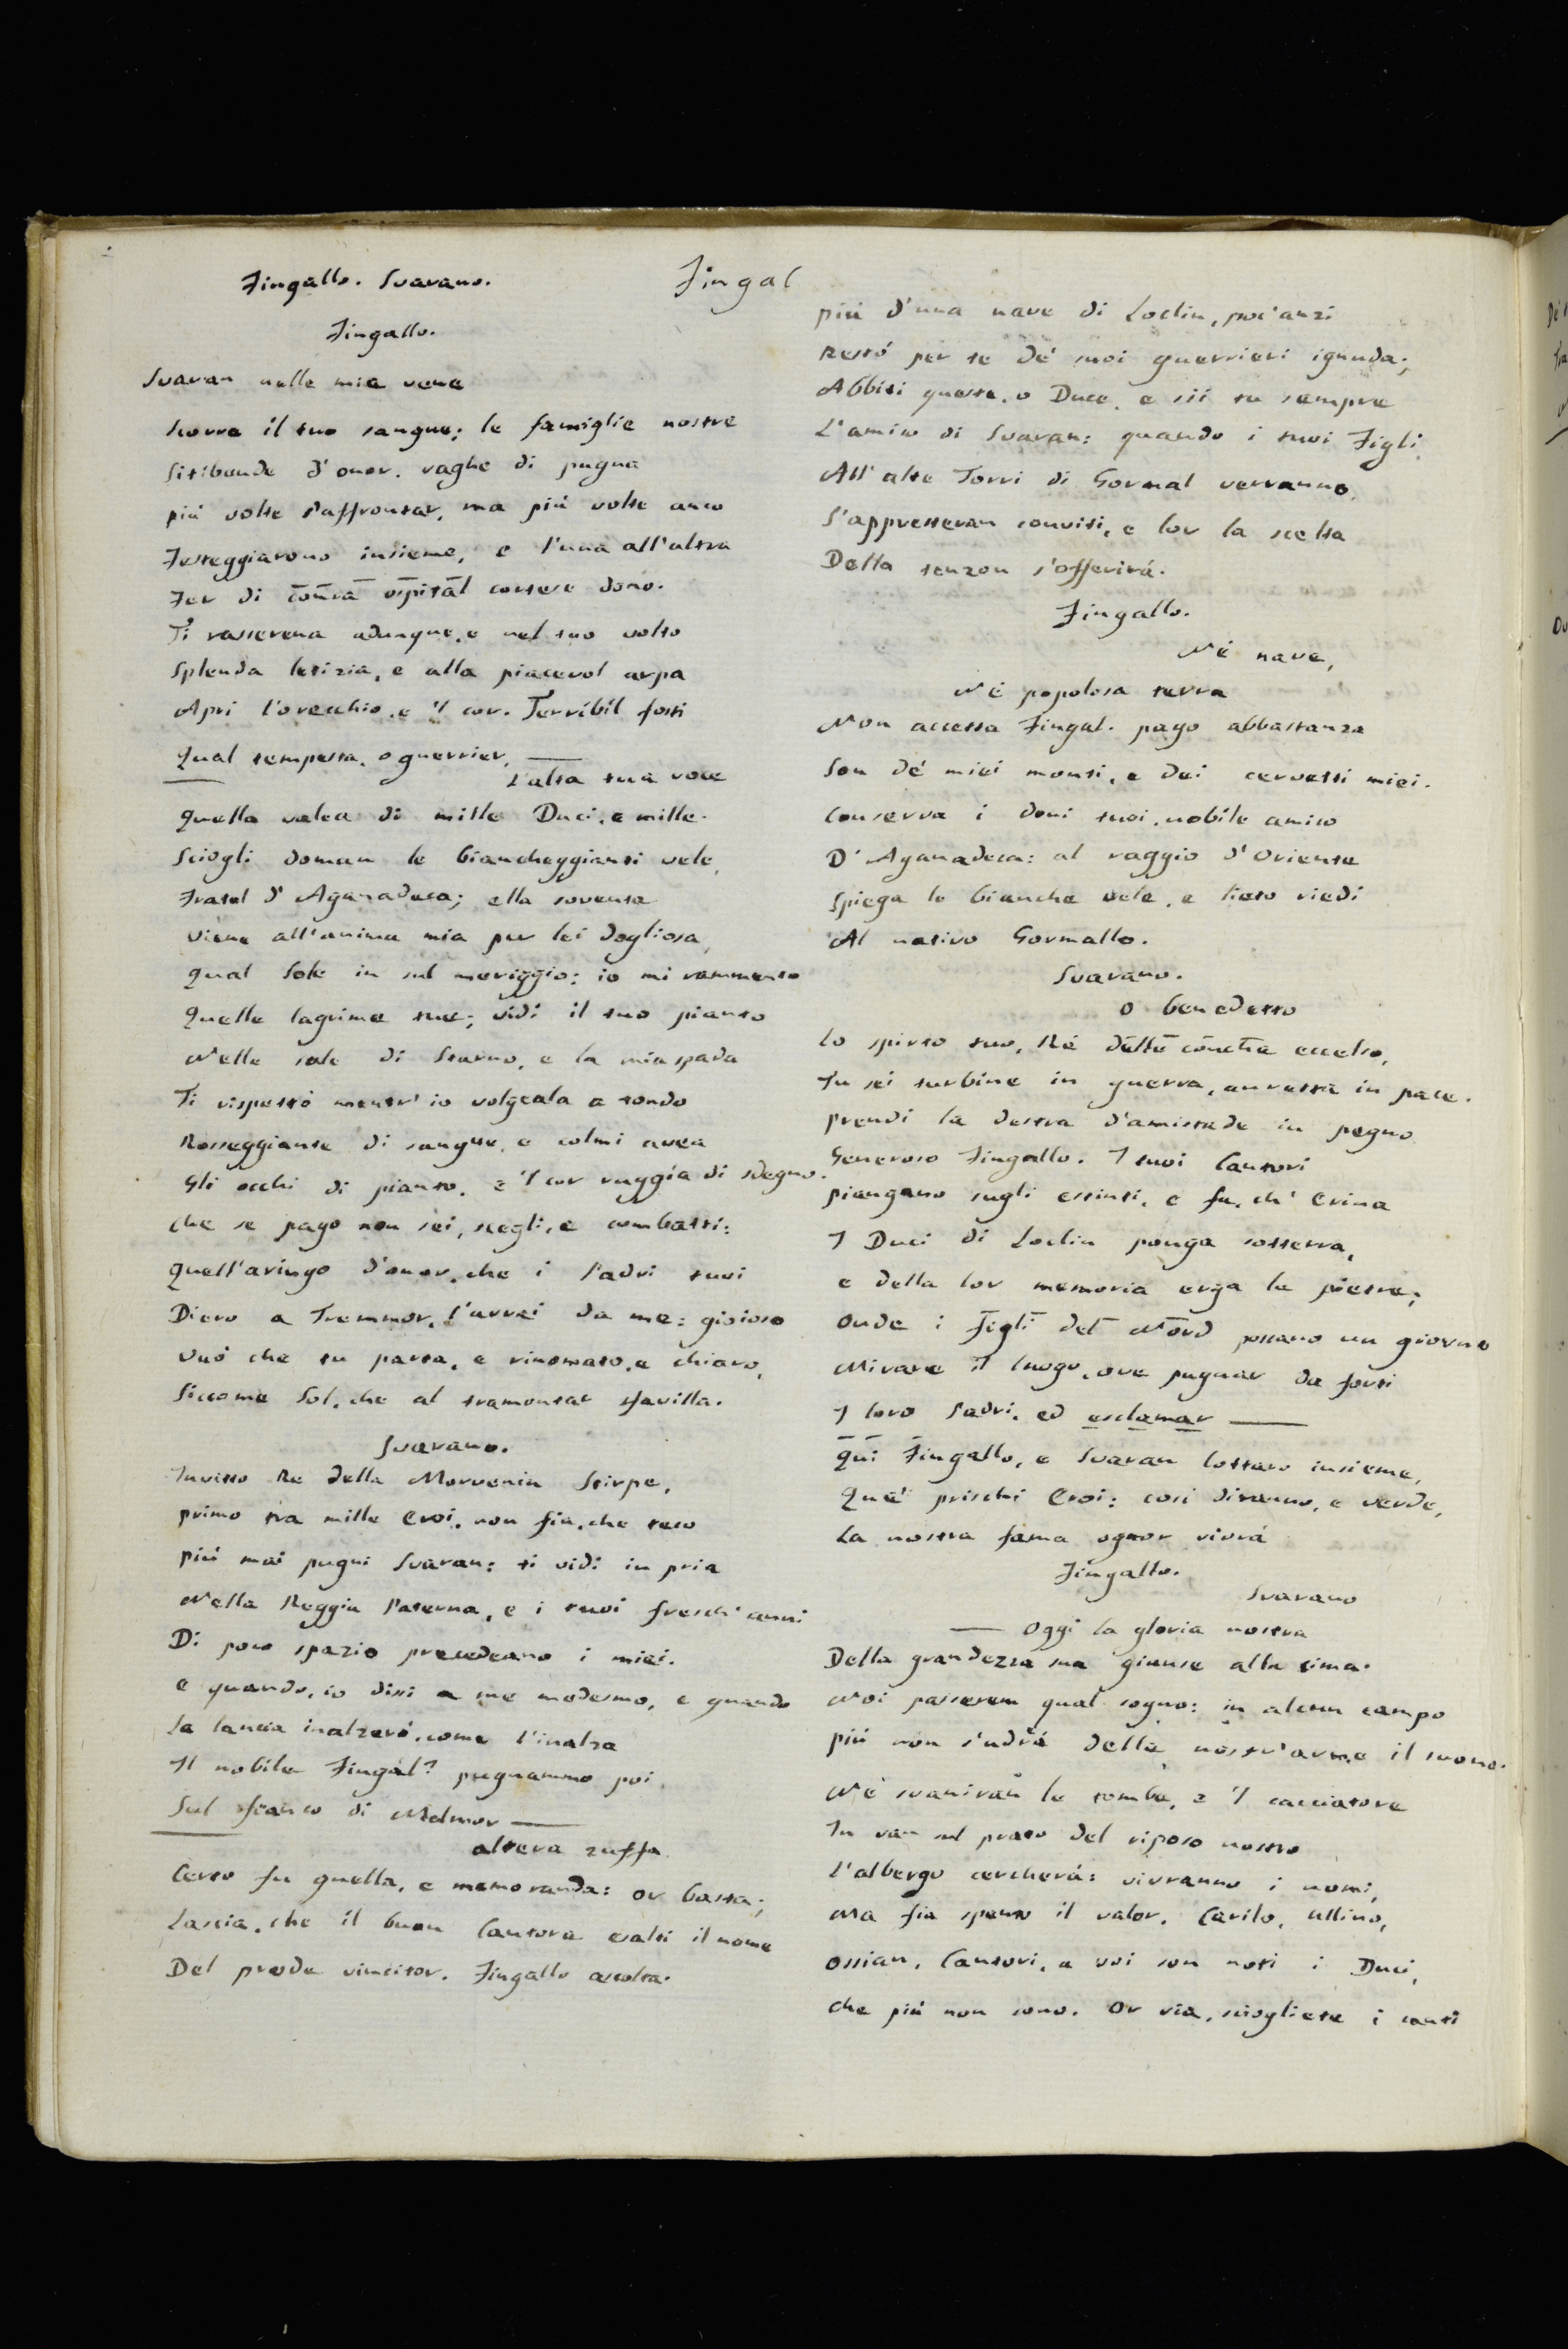 Fingallo. Svarano.
Fingal
Fingallo.
Svaran nelle mie vene
Scorre il tuo sangue; le famiglie nostre
Sitibonde d'onor, vaghe di pugna
più volte s'affrontar, ma più volte anco
Festeggiarono insieme, e l'una all'altra
Fer di conca ospital cortese dono.
Ti rasserena adunque, e nel tuo volto
Splenda letizia, e alla piacevol arpa
Apri l'orecchio, e 'l cor. Terribil fosti
Qual tempesta, o guerrier,
L'alta tua voce
Quella valea di mille Duci, e mille.
Sciogli doman le biancheggianti vele,
Fratel d'Aganadeca; ella sovente
Viene all'anima mia per lei dogliosa,
Qual Sole in sul meriggio: io mi rammento
Quelle lagrime tue; vidi il tuo pianto
Nelle sale di Starno, e la mia spada
Ti rispettò mentr'io volgeala a tondo
Rosseggiante di sangue, e colmi avea
Gli occhi di pianto, e 'l cor ruggia di sdegno.
Che se pago non sei, scegli, e combatti:
Quell'aringo d'onor, che i Padri tuoi
Diero a Tremmor, l'avrai da me: gioioso
Vuò che tu parta, e rinomato, e chiaro,
Siccome Sol, che al tramontar sfavilla.
Svarano.
Invitto Re della Morvenia Stirpe,
primo tra mille Eroi, non fia, che teco
più mai pugni Svaran: ti vidi in pria
Nella Reggia Paterna, e i tuoi fresch'anni
Di poco spazio precedeano i miei.
e quando, io dissi a me medesmo, e quando
La lancia inalzerò, come l'inalza
Il nobile Fingal? pugnammo poi
Sul fianco di Malmor
altera zuffa
Certo fu quella, e memoranda: or basta;
Lascia, che il buon Cantore esalti il nome
Del prode vincitor. Fingallo ascolta.
più d'una nave di Loclin, poc'anzi
Restó per te de' suoi guerrieri ignuda;
Abbiti questa, o Duce, e sii tu sempre
L'amico di Svaran: quando i tuoi Figli
All'alte Torri di Gormal verranno,
S'appresteran conviti, e lor la scelta
Della tenzon s'offerirà.
Fingallo.
Nè nave,
Nè popolosa terra
Non accetta Fingal. pago abbastanza
Son de' miei monti, e dei cervetti miei.
Conserva i doni tuoi, nobile amico
D'Aganadeca: al raggio d'Oriente
Spiega le bianche vele, e lieto riedi
Al nativo Gormallo.
Svarano.
O benedetto
Lo spirto tuo, Rè delle conche eccelso,
Tu sei turbine in guerra, auretta in pace.
prendi la destra d'amistade in pegno
Generoso Fingallo. I tuoi Cantori
piangano sugli estinti, e fa, ch'Erina
I Duci di Loclin ponga sotterra,
e della lor memoria erga le pietre;
Onde i figli del Nord possano un giorno
Mirare il luogo, ove pugnar da forti
I loro Padri, ed esclamar
Quì Fingallo, e Svaran lottaro insieme,
Que' prischi Eroi: così diranno, e verde,
La nostra fama ognor vivrà
Fingallo.
Svarano
Oggi la gloria nostra
Della grandezza sua giunse alla cima.
Noi passerem qual sogno: in alcun campo
più non s'udrà delle nostr'arme il suono.
Nè svaniran le tombe, e 'l cacciatore
In van sul prato del riposo nostro
L'albergo cercherà: vivranno i nomi,
Ma fia spento il valor. Carilo, Ullino,
Ossian, Cantori, a voi son noti i Duci,
che più non sono. Or via, sciogliete i canti